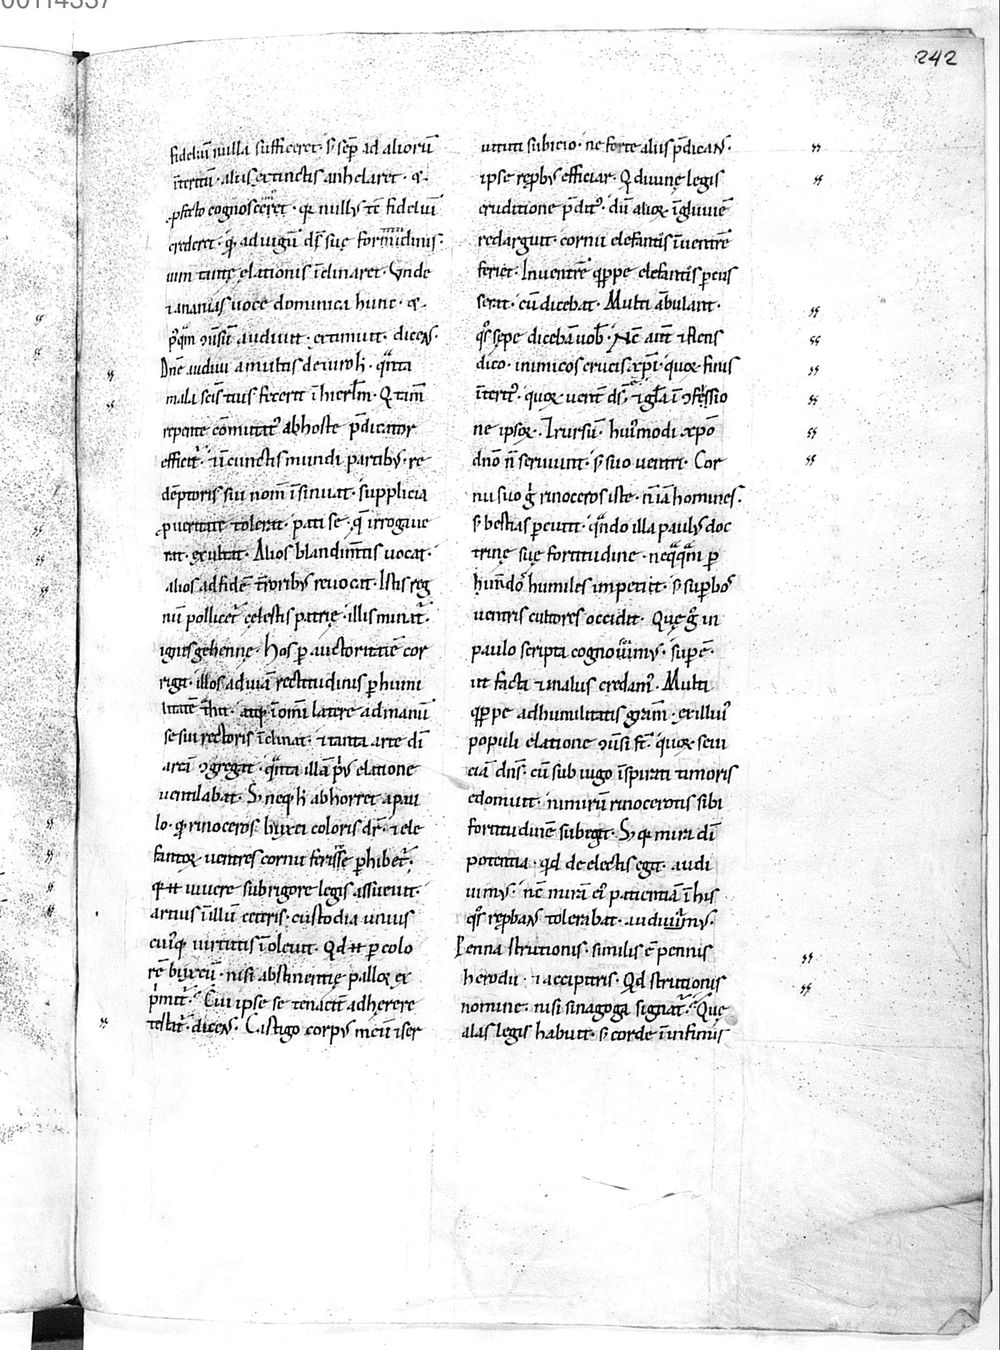 00114337
242
fideliũ nulla sufficeret· s̄ sep̄ ad alioru᷑
īteritũ· aliis extinctis anhelaret· &·
ꝓfecto cognosceret· qꝫ nullꝰ tc̄ fideliũ
crederet· qđ ad uigũ dī suę formidinis·
uim tantę elationis īclinaret· Vnde
⁊ ananias uoce dominica hunc· &·
p̓q̄m ꝯũsũ audiuit· extimuit· dicens·
Dn̄e audiui a multis de uiro h̓· q̄nta
mala sc̄is tuis fecerit ī hierl̄m· Q tam̄
repente cōmutatᷣ ab hoste p̄dicator
efficitᷣ· ⁊ ī cunctis mundi partibꝰ· re
dēptoris sui nom̄ īsinuat· supplicia
ꝓ ueritate tolerat· pati se· q̄ irrogaue
rat· exultat· Alios blandim̄tis uocat·
alios ad fidē t̄roribꝰ reuocat· Istis reg
nũ pollicetᷣ cęlestis patrię· illis minatᷣ·
ignes gehenne· Hos ꝑ auctoritatē cor
rigit· illos ad uiā rectitudinis ꝑ humi
litatē t̄hit· atqꝫ ī om̄i latere ad manũ
se sui rectoris īclinat· ⁊ tanta arte dī
areā ꝯgregat· q̄nta illā p̓ꝰ elatione
uentilabat· S; neqꝫ h̓ abhorret a pau
lo· qđ rinoceros buxei coloris dr̄· ⁊ ele
fantoꝝ uentres cornu ferisse ꝑhibetᷣ·
qꝫ ħ uiuere sub rigore legis assueuit·
artius ī illũ cęteris· custodia unius
cuiꝰqꝫ uirtutis īoleuit· Qđ ħ ꝑ colo
rē buxeũ· nisi abstinentię pallor ex
p̓mitᷣ· Cui ipse se tenacit̄ adherere
testatᷣ· dicens· Castigo corpꝰ meũ ⁊ ser
uituti subicio· ne forte aliis p̄dicans·
ipse reꝓbꝰ efficiar· Q diuinę legis
eruditione p̄ditꝰ· dũ alioꝝ īgluuiē
redarguit· cornu elefantis ī uentrē
feriet· In uentrē q̄ppe elefantis ꝑcus
serat· cũ dicebat· Multi ābulant·
q̊s sepe dicebā uob̄· Nc̄ aut̄ ⁊ flens
dico· inimicos crucis xp̄i· quoꝝ finis
īteritꝰ· quoꝝ uent̄ dc̄· ⁊ gl̄a ī ꝯfessio
ne ipsoꝝ· Irursũ· huiꝰmodi xp̄o
dn̄o n̄ seruiunt· s̄ suo uentri· Cor
nu suo ḡ rinoceros iste· n̄ iā homines·
s̄ bestias ꝑcutit· q̄ndo illa paulꝰ doc
trinę suę fortitudine· neq̄q̄m ꝑ
hun̄do̓ humiles impetiit· s̄ suꝑbos
uentris cultores occidit· Quę ḡ in
paulo scripta cognouimꝰ· supē·
ut facta ⁊ in aliis credamꝰ· Multi
q̄ppe ad humilitatis gr̄am· ex illiꝰ
populi elatione ꝯũsi st̄· quoꝝ seui
ciā dn̄s· cũ sub iugo īspirati timoris
edomuit· nimirũ rinocerotis sibi
fortitudinē subegit· S; qꝫ mira dī
potentia· qđ de electis egit· audi
uimꝰ· nc̄ mirā eiꝰ patientiā ī his
q̊s reꝓbans tolerabat· audiuimꝰ·
Penna strutionis· similis ē pennis
herodii· ⁊ accipitris· Qđ strutionis
nomine· nisi sinagoga signatᷣ· Quę
alas legis habuit· s̄ corde ī infimis